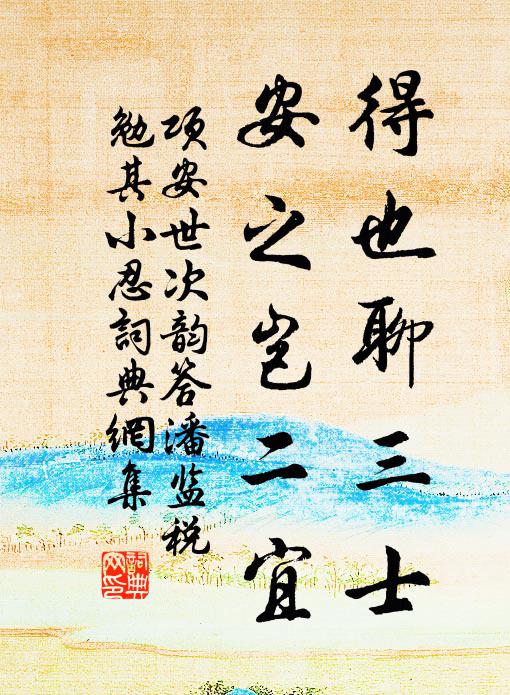 得也聊三士
安之岂二宜
项安世次韵答潘监税
勉其小忍詞典網集
詞典